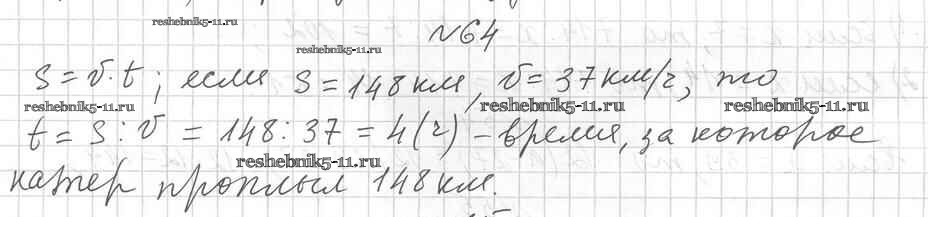 reshebnik5-11.ru
№64
reshebnik5-11.ru
S = v · t; если S = 148 км, v = 37 км/ч, то
reshebnik5-11.ru reshebnik5-11.ru reshebnik5-11.ru
t = S : v = 148 : 37 = 4 (ч) – время, за которое
reshebnik5-11.ru
катер проплыл 148 км.